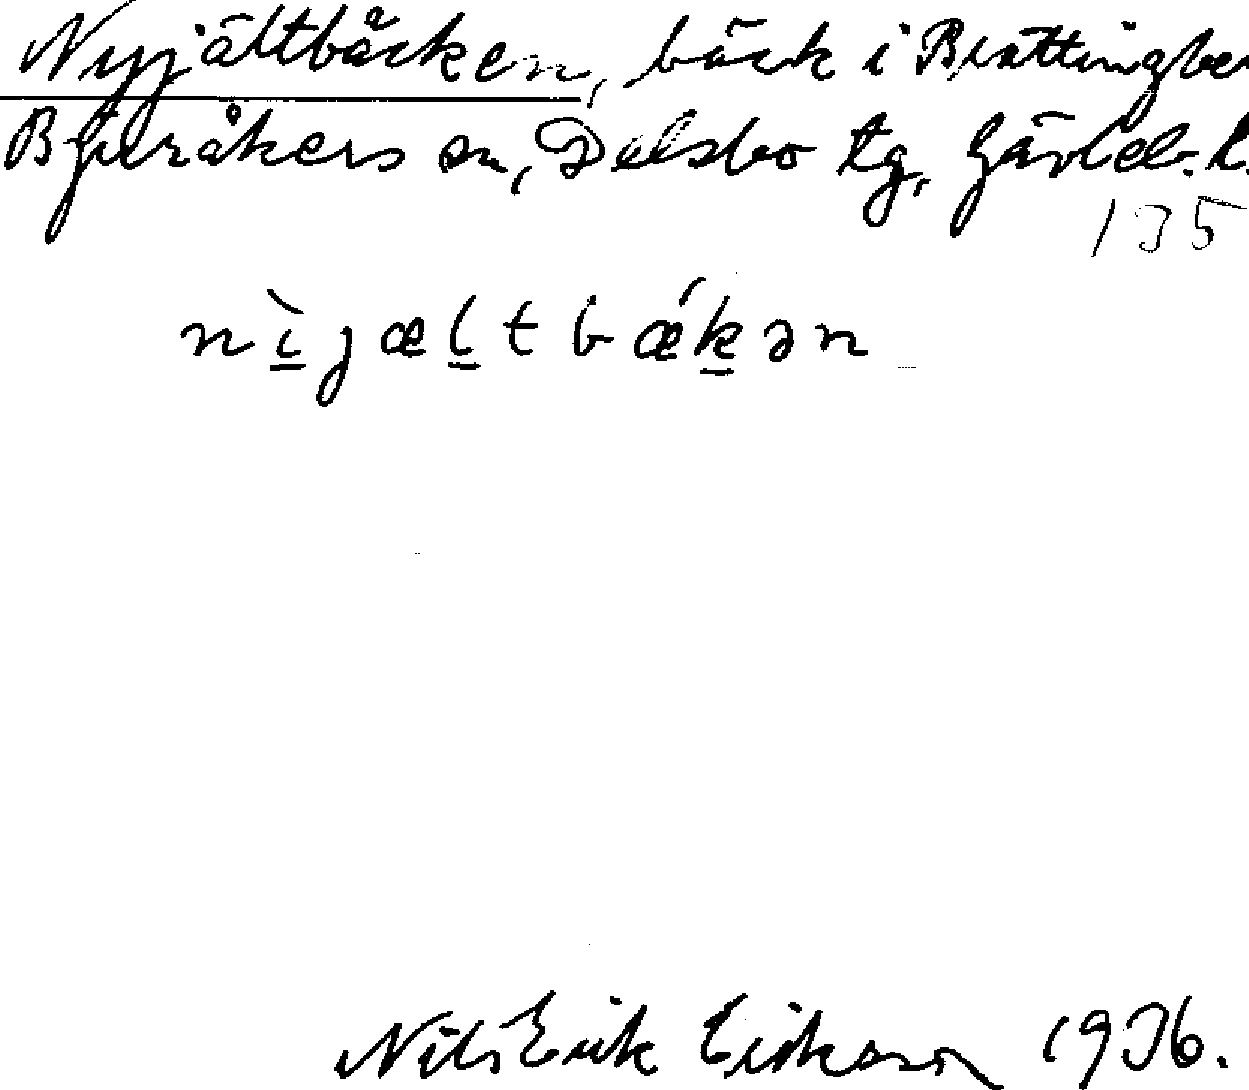 Nyjältbäcken, bäck i Brattingber
Bjuråkers sn, Delsbo tg, Gävleb. l.
135
nìjæltbǽkən
Nils Erik Eriksson 1936.